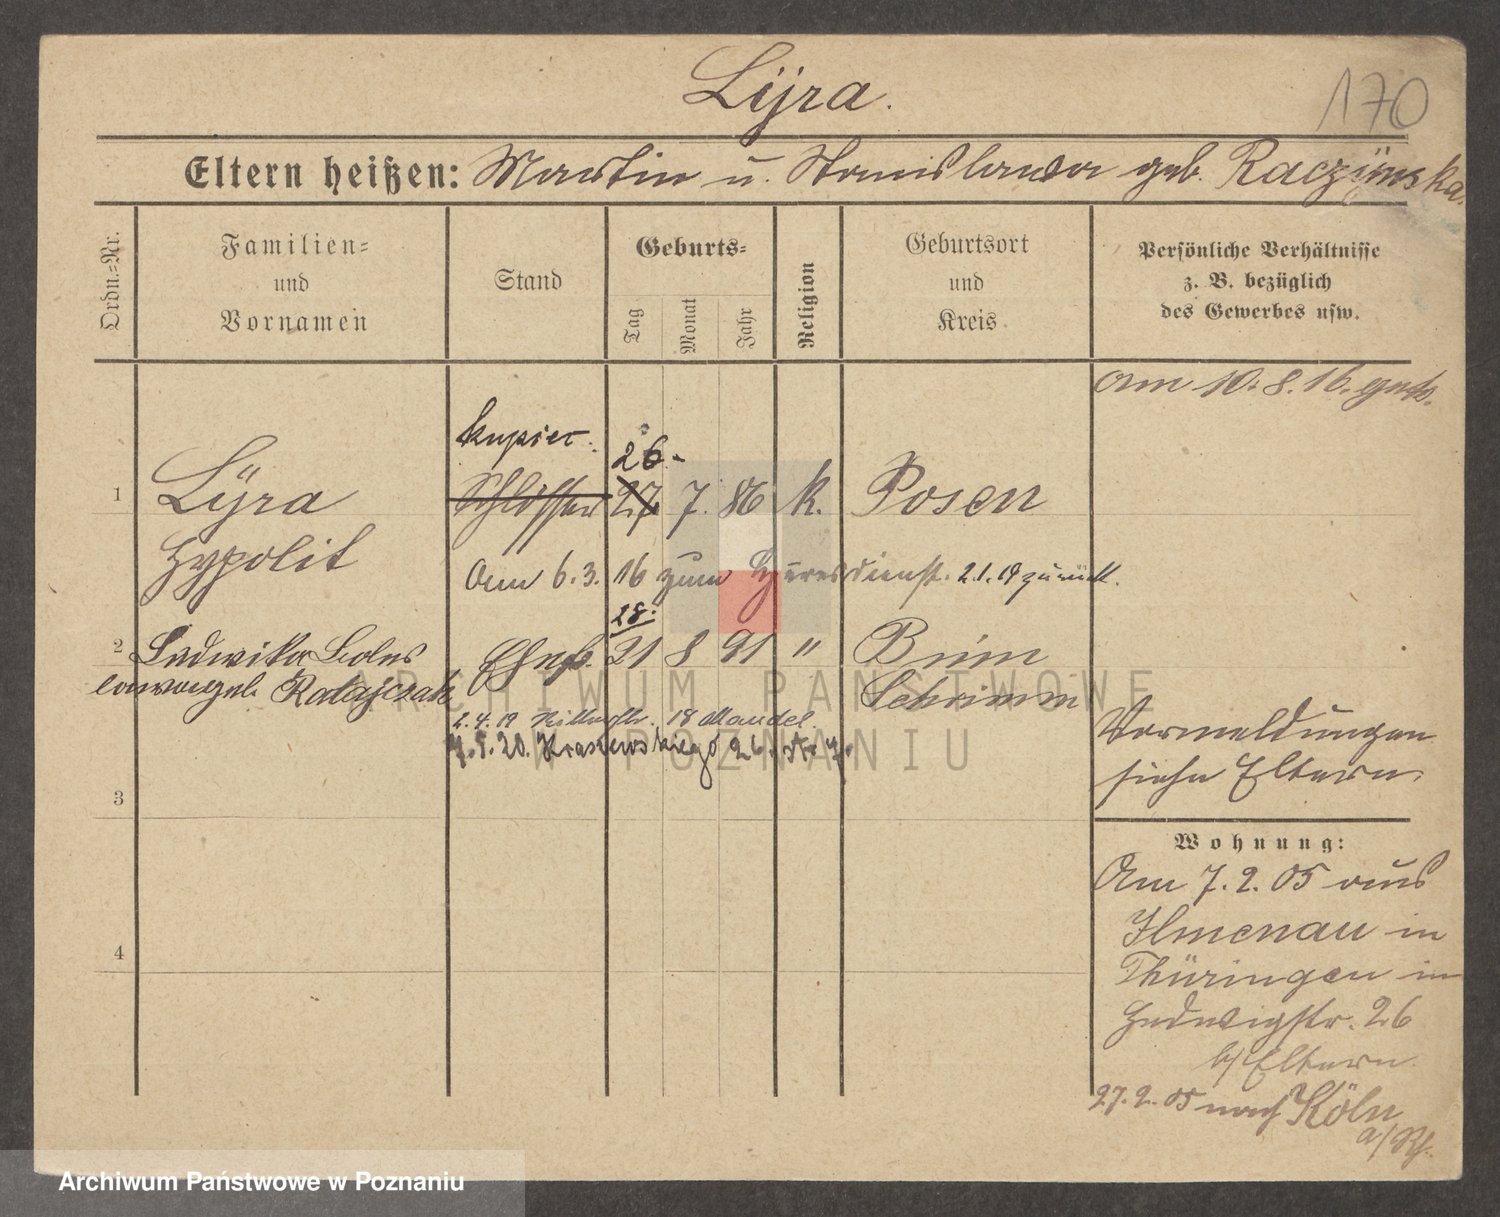 Lÿra.
170
Eltern heißen: Martin u. Stanislawa geb. Raczÿnska.
Ordn.=Nr.
Familien=
und
Vornamen
Stand
Geburts=
Tag
Monat
Jahr
Religion
Geburtsort
und
Kreis
Persönliche Verhältnisse
z. B. bezüglich
des Gewerbes usw.
am 10. 8. 16.
kupiec.
26.
1 Lÿra Schlosser 27 7. 86 k. Posen
Hypolit
Am 6. 3. 16 zum Heeresdienst. 2.1.19 zurück.
28.
2 Ludwika Boles Ehefr. 21 8 91 " Bnin
lawa geb. Ratajczak Schrimm
2.4.19 18 Mandel.
20. Kraszewskiego 26.
Vormeldungen
siehe Eltern.
3
Wohnung:
Am 7. 2. 05 aus
Ilmenau in
Thüringen in
Hedwigstr. 26
b/ Eltern.
27. 2. 05 nach Köln
a/Rh.
4
ARCHIWUM PAŃSTWOWE
W POZNANIU
Archiwum Państwowe w Poznaniu